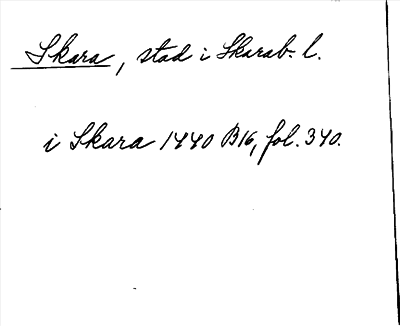 Skara, stad i Skarab. l.
i Skara 1440 B16, fol. 340.